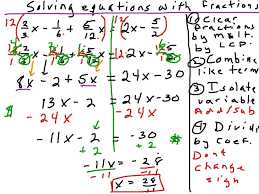 Solving equations with fractions
12(2/3x - 1/6 + 5/12x) 12(2x - 5/2)
8x - 2 + 5x = 24x - 30
13x - 2 = 24x - 30
-24x -24x
-11x - 2 = -30
+2 +2
-11x = -28
-11 -11
x = 28/11
① Clear fractions
by mult.
by LCD.
② Combine
like terms
③ Isolate
variable
Add/sub
④ Divide
by coef.
Dont
change
sign